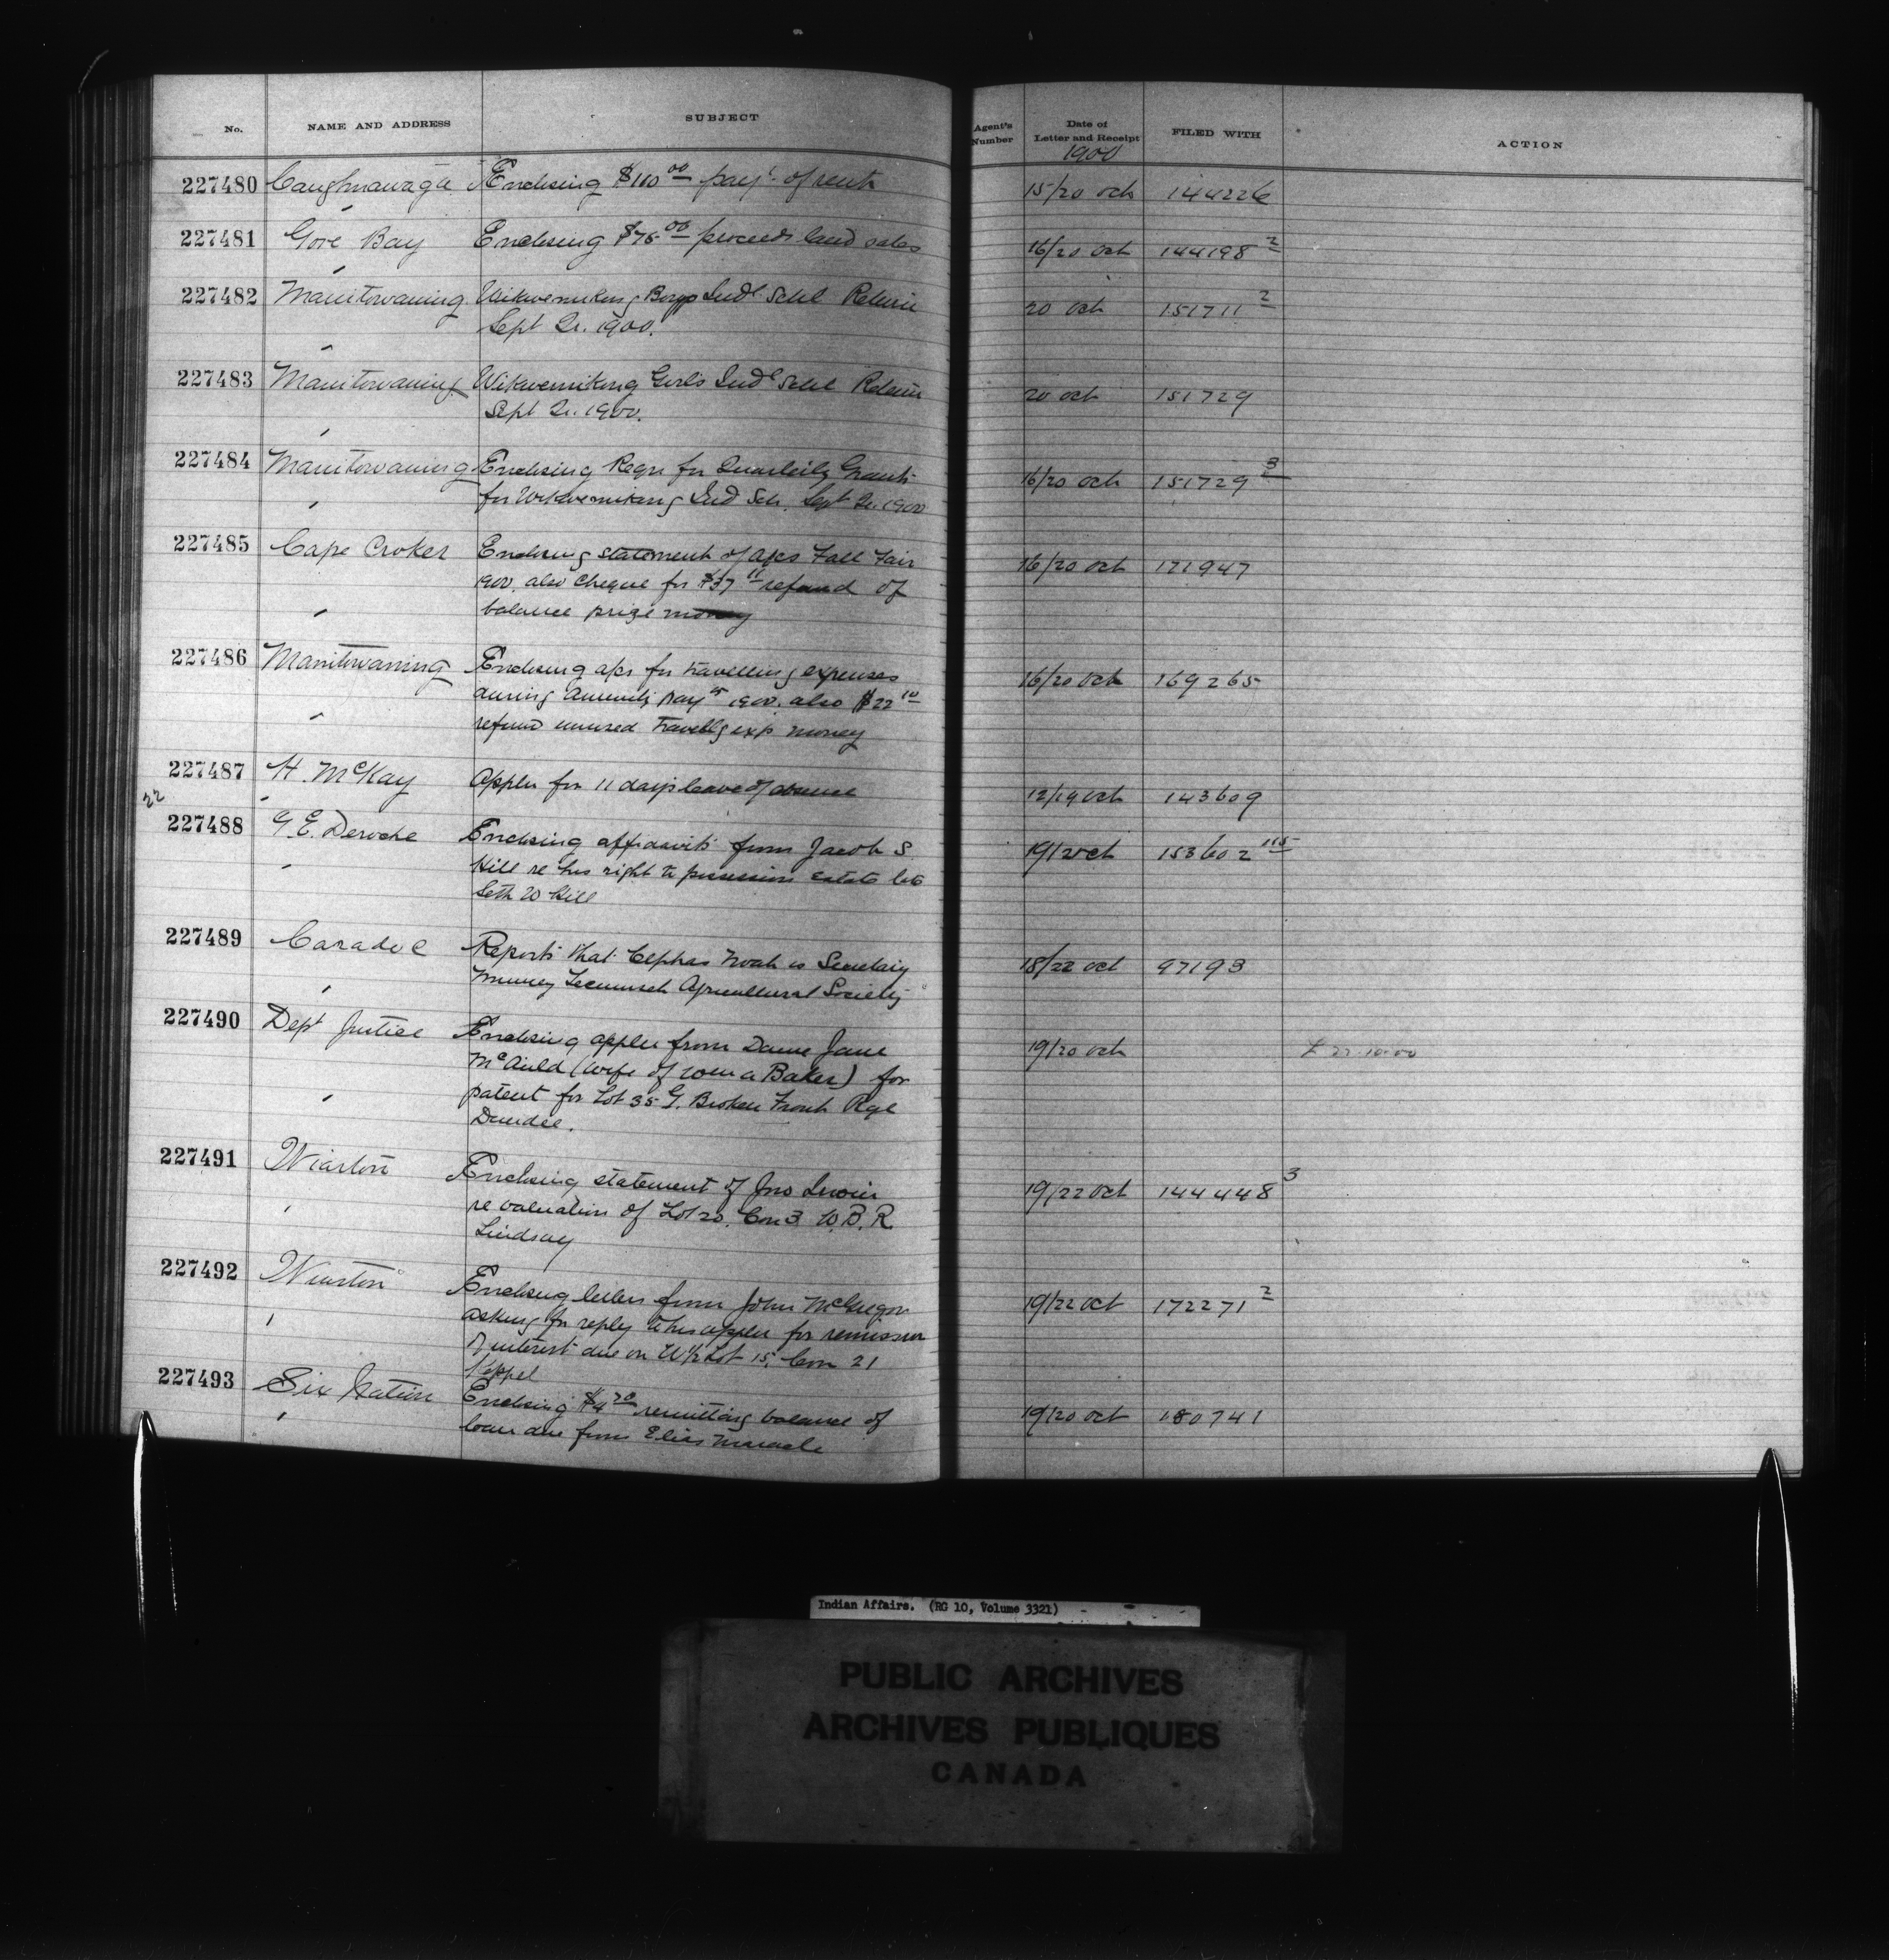 No. NAME AND ADDRESS SUBJECT Agent's Number Date of Letter and Receipt FILED WITH ACTION
1900
227480 Caughnawaga Enclosing $110 00 payt. of rent 15/20 Oct 144226
227481 Gore Bay Enclosing $75 00 proceeds land sales 16/20 Oct 144198 2
227482 Manitowaning Wikwemikong Boys Indl Schl Return 20 Oct 151711 2
Sept Qr. 1900.
227483 Manitowaning Wikwemikong Girls Indl Schl Return 20 Oct 151729
Sept Qr. 1900.
227484 Manitowaning Enclosing Reqn for Quarterly Grants 16/20 Oct 151729 3
for Wikwemikong Ind Sch. Sept Qr. 1900
227485 Cape Croker Enclosing statement of a/cs Fall Fair 16/20 Oct 171947
1900, also cheque for $37 11 refund of
balance prize money
227486 Manitowaning Enclosing a/cs for travelling expenses 16/20 Oct 169265
during Annuity Payts 1900. also $22 10
refund unused travellg exp money
227487 H. McKay Applen for 11 days leave of absence 12/19 Oct 143609
22
227488 G. E. Deroche Enclosing affidavits from Jacob S 19/20 Oct 153602 115
Hill re his right to possession estate late
Seth W Hill
227489 Caradoc Reports that Cephas Noah is Secretary 18/22 Oct 97193
Muncey Tecumseh Agricultural Society
227490 Dept Justice Enclosing applen from Dame Jane 19/20 Oct
McAuld (wife of Wm a Baker) for
patent for Lot 35 G. Broken Front Rge
Dundee.
227491 Wiarton Enclosing statement of Jno Irwin 19/22 Oct 144448 3
re valuation of Lot 20. Con 3 W.B.R.
Lindsay
227492 Wiarton Enclosing letter from John McGregor 19/22 Oct 172271 2
asking for reply to his applen for remission
of interest due on W½ Lot 15, Con 21
Keppel
227493 Six Nation Enclosing $4 20 remitting balance of 19/20 Oct 180741
loan due from Elias Maracle
Indian Affairs. (RG 10, Volume 3321)
PUBLIC ARCHIVES
ARCHIVES PUBLIQUES
CANADA